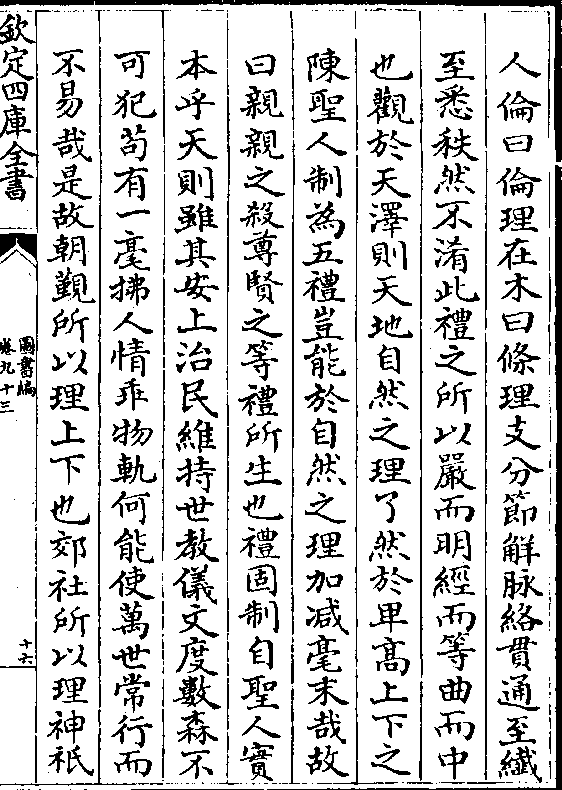 人倫曰倫理在木曰條理支分節解脉絡貫通至纎
至悉秩然不淆此禮之所以嚴而明經而等曲而中
也觀於天澤則天地自然之理了然於卑高上下之
陳聖人制為五禮豈能於自然之理加减毫末哉故
曰親親之殺尊賢之等禮所生也禮固制自聖人實
本乎天則雖其安上治民維持世教儀文度數森不
可犯茍有一毫拂人情乖物軌何能使萬世常行而
不易哉是故朝覲所以理上下也郊社所以理神祇
欽定四庫全書
圖書編
卷九十三
十六